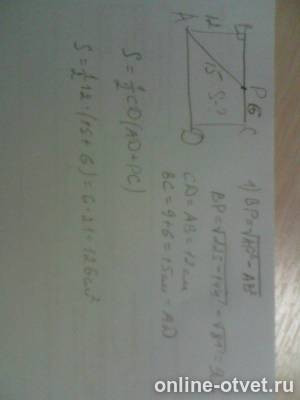 A 12 B
P 6
15 S-?
C
D
1) BP=√AP²-AB²
BP=√225-144=√81=9
CD=AB=12см
BC=9+6=15см=AD
S=½CD(AD+PC)
S=½12·(15+6)=6·21=126см²
online-otvet.ru